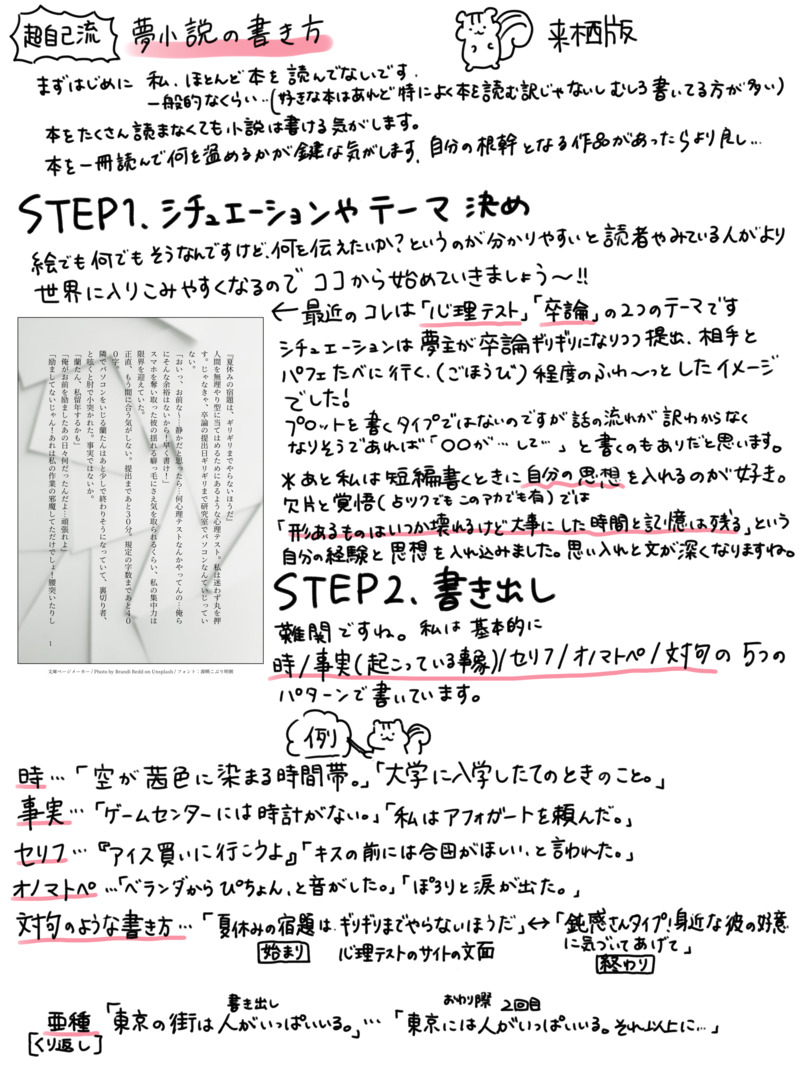 超自己流 夢小説の書き方 来栖版
まずはじめに 私、ほとんど本を読んでないです.
一般的なくらい‥(好きな本はあれど特によく本を読む訳じゃないしむしろ書いてる方が多い)
本をたくさん読まなくても小説は書ける気がします。
本を一冊読んで何を温めるかが鍵な気がします. 自分の根幹となる作品があったらより良し…
STEP1. シチュエーションや テーマ 決め
絵でも何でもそうなんですけど、何を伝えたいか?というのが分かりやすいと読者やみている人がより
世界に入りこみやすくなるので ココから始めていきましょう〜!!
←最近のコレは「心理テスト」「卒論」の2つのテーマです
シチュエーションは夢主が卒論ギリギリになりつつ提出、相手と
パフェたべに行く、(ごほうび)程度のふわ〜っとしたイメージ
でした!
プロットを書くタイプではないのですが話の流れが訳わからなく
なりそうであれば「〇〇が…して…」と書くのもありだと思います。
*あと私は短編書くときに自分の思想を入れるのが好き。
欠片と覚悟(占ツクでもこのアカでも有)では
「形あるものはいつか壊れるけど大事にした時間と記憶は残る」という
自分の経験と思想を入れ込みました。思い入れと文が深くなりますね。
『夏休みの宿題は、ギリギリまでやらないほうだ』
人間を無理やり型に当てはめるためにあるような心理テスト。私は迷わず丸を押
す。じゃなきゃ、卒論の提出日ギリギリまで研究室でパソコンなんていじってい
ない。
「おいっ、お前な〜…静かだと思ったら…何心理テストなんかやってんの…俺ら
にそんな余裕はないから!早く書け!」
スマホを奪い取った彼の揺れる癖っ毛にさえ気を取られるくらい、私の集中力は
限界を迎えていた。
正直、もう間に合う気がしない。提出まであと30分、規定の字数まであと40
0字。
隣でパソコンをいじる蘭たんはあと少しで終わりそうになっていて、裏切り者、
と呟くと肘で小突かれた。事実ではないか。
「蘭たん、私留年するかも」
「俺がお前を励ましたあの日々何だったんだよ…頑張れよ」
「励ましてないじゃん!あれは私の作業の邪魔してただけでしょ!腰突いたりし
1
文庫ページメーカー / Photo by Brandi Redd on Unsplash / フォント:源暎こぶり明朝
STEP2. 書き出し
難関ですね。私は基本的に
時/事実(起こっている事象)/セリフ/オノマトペ/対句の5つの
パターンで書いています。
例
時…「空が茜色に染まる時間帯。」「大学に入学したてのときのこと。」
事実…「ゲームセンターには時計がない。」「私はアフォガートを頼んだ。」
セリフ…『アイス買いに行こうよ』「キスの前には合図がほしい、と言われた。」
オノマトペ…「ベランダからぴちょん、と音がした。」「ぽろりと涙が出た。」
対句のような書き方…「夏休みの宿題は、ギリギリまでやらないほうだ」↔「鈍感さんタイプ!身近な彼の好意
に気づいてあげて」
始まり 心理テストのサイトの文面 終わり
書き出し おわり際 2回目
亜種「東京の街は人がいっぱいいる。」…「東京には人がいっぱいいる。それ以上に…」
[くり返し]